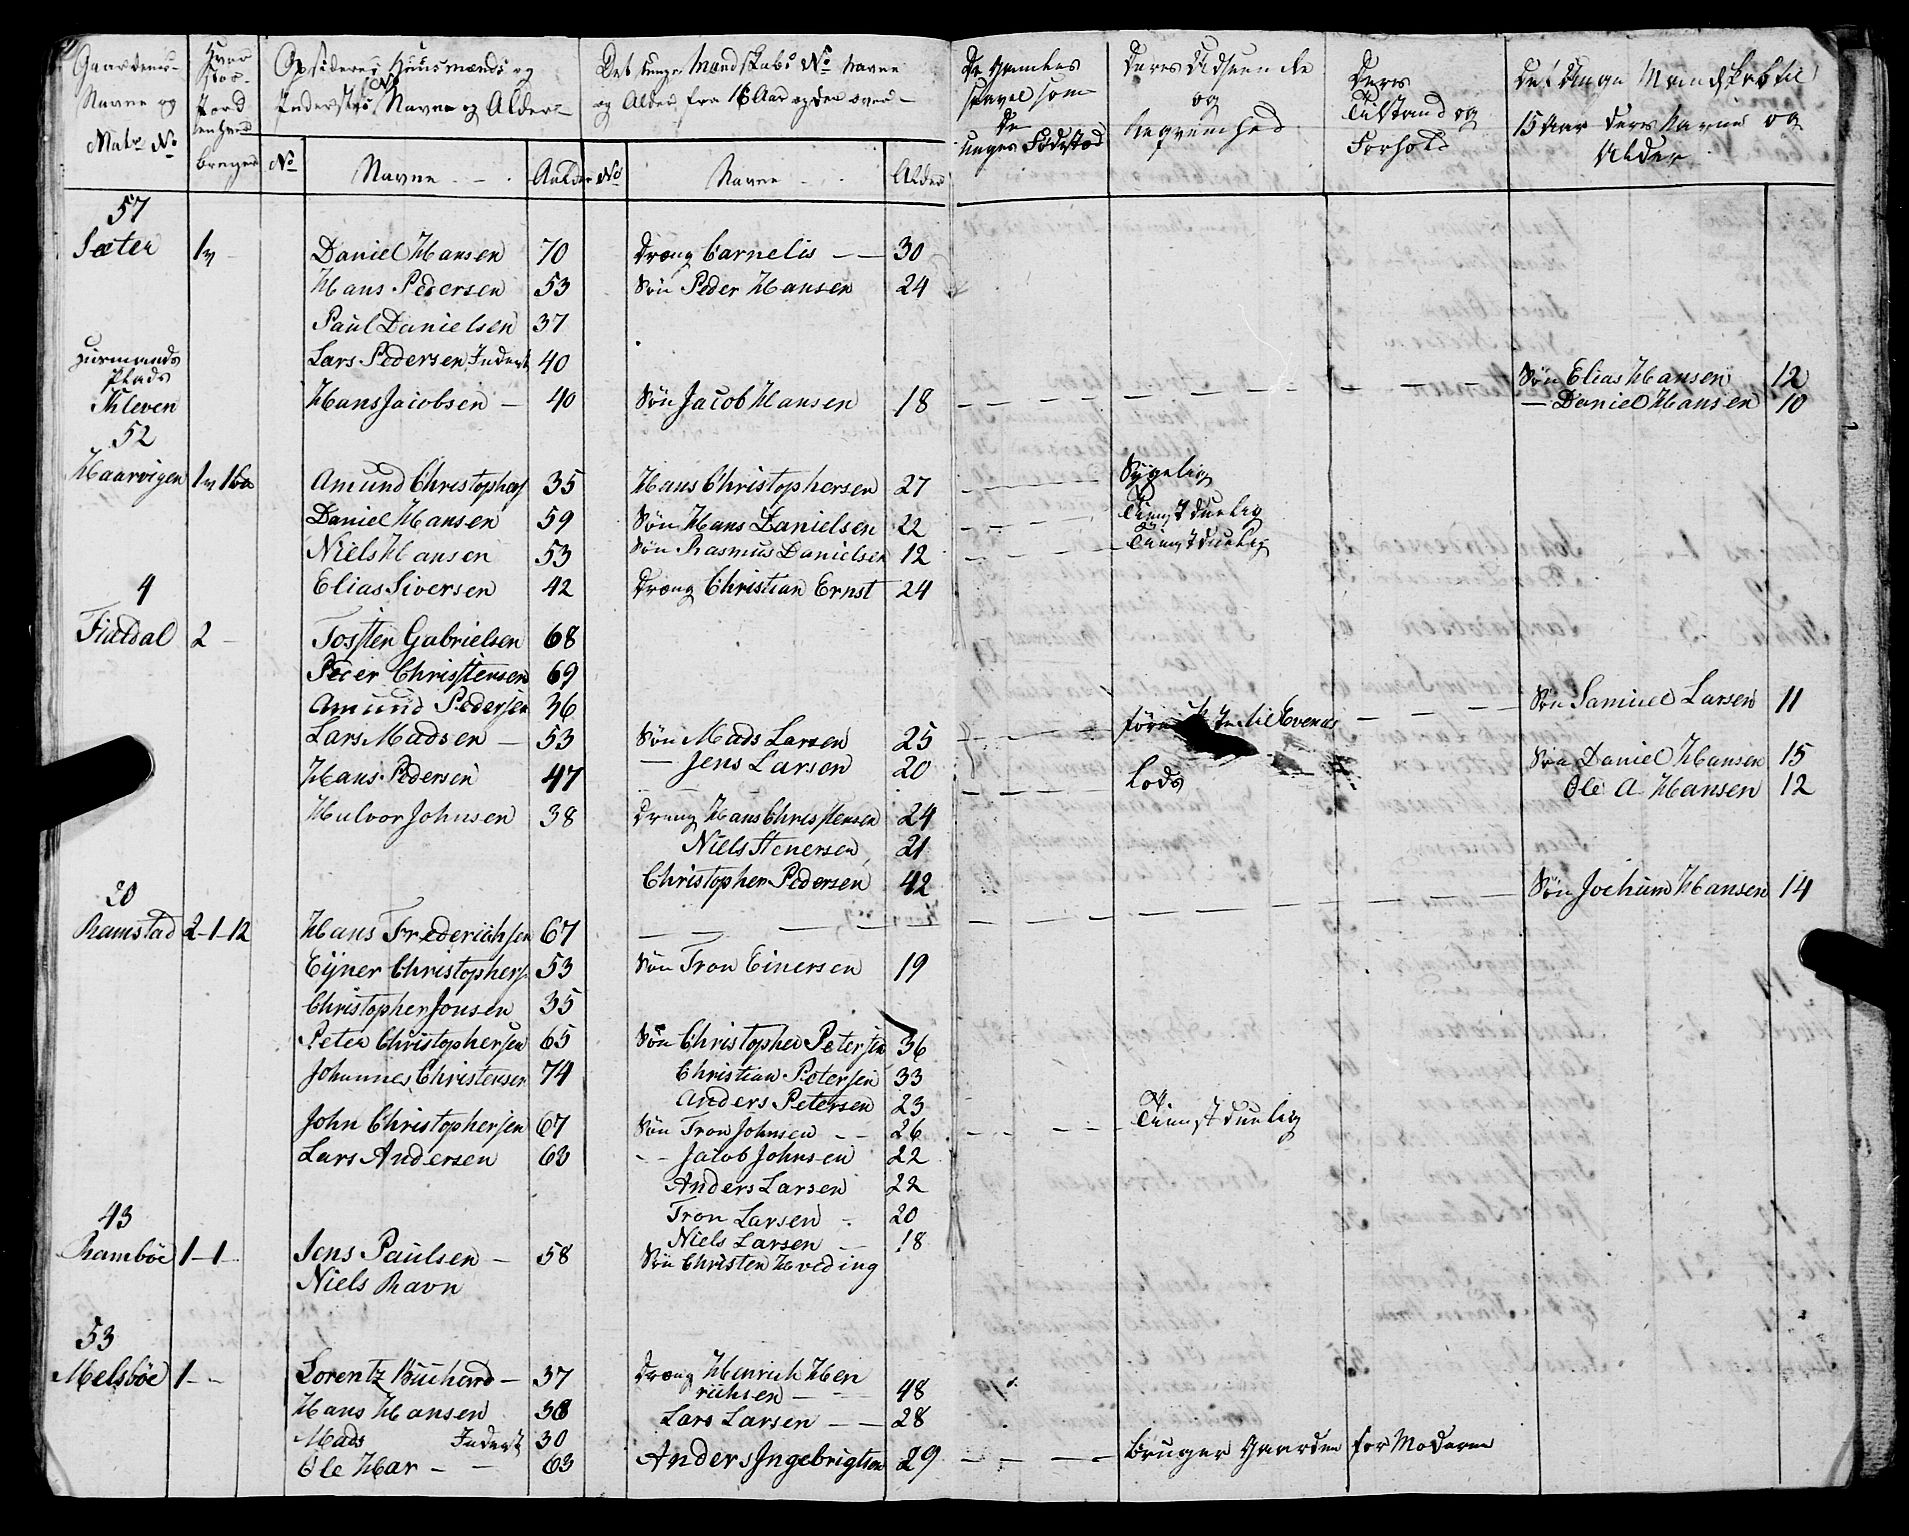 Gaardenes Navne og Matr No
Hver
Opsideres Huusmænds og Inderstes Navne og Alder
Det unge Mandskabs No Navne og Alder, fra 16 Aar og der over
De Gamles saavel som De unges Fødested
Deres Udseende og
Deres Tilstand og Forhold
Det Unge Mandskab til 15 Aar deres Navne og Alder
No Navne Alder No Navne Alder
57
Sæter 1 Daniel Hansen 70 Dræng Carnelis 30
Hans Pedersen 53 Søn Peder Hansen 24
Paul Danielsen 37
Lars Pedersen Inderst 40
Plads
Kleven Hans Jacobsen 40 Søn Jacob Hansen 18 Søn Elias Hansen 12
Daniel Hansen 10
52
Haarvigen Amund Christophers 35 Hans Christophersen 27 Sÿgelig
Daniel Hansen 59 Søn Hans Danielsen 22 Tienstduelig
Niels Hansen 53 Søn Rasmus Danielsen 12 Tienstduelig
Elias Siversen 42 Dræng Christian Ernst 24
4
Fialdal 2 Tosten Gabrielsen 68
Peder Christensen 69
Amund Pedersen 36 Søn Samuel Larsen 11
Lars Madsen 53 Søn Mads Larsen 25
Jens Larsen 20
Hans Pedersen 47 Lods Søn Daniel Hansen 15
Ole A Hansen 12
Halvor Johnsen 38 Dræng Hans Christensen 24
Niels Stenersen 21
Christopher Pedersen 42
20
Ramstad 2-1-12 Hans Frederichsen 67 Søn Jochum Hansen 14
Eÿner Christophers 53 Søn Tron Einersen 19
Christopher Jonsen 35
Peter Christophersen 65 Søn Christopher Petersen 36
Johannes Christensen 74 Christian Petersen 33
Anders Petersen 23
John Christophersen 67 Søn Tron Johnsen 26 Tienstduelig
Lars Andersen 63 Jacob Johnsen 22
Anders Larsen 22
Tron Larsen 20
Niels Larsen 18
43
Ramböe 1-1 Jens Paulsen 58 Søn Christen Hveding
Niels Ravn
53
Melsböe 1 Lorentz Buchard 37 Dræng Henrich Hen
richsen 48
Hans Hansen 38 Lars Larsen 28
Mads Inderst 30
Ole Har 63 Anders Ingebrigtsen 29 Bruger Gaarden for Moderen